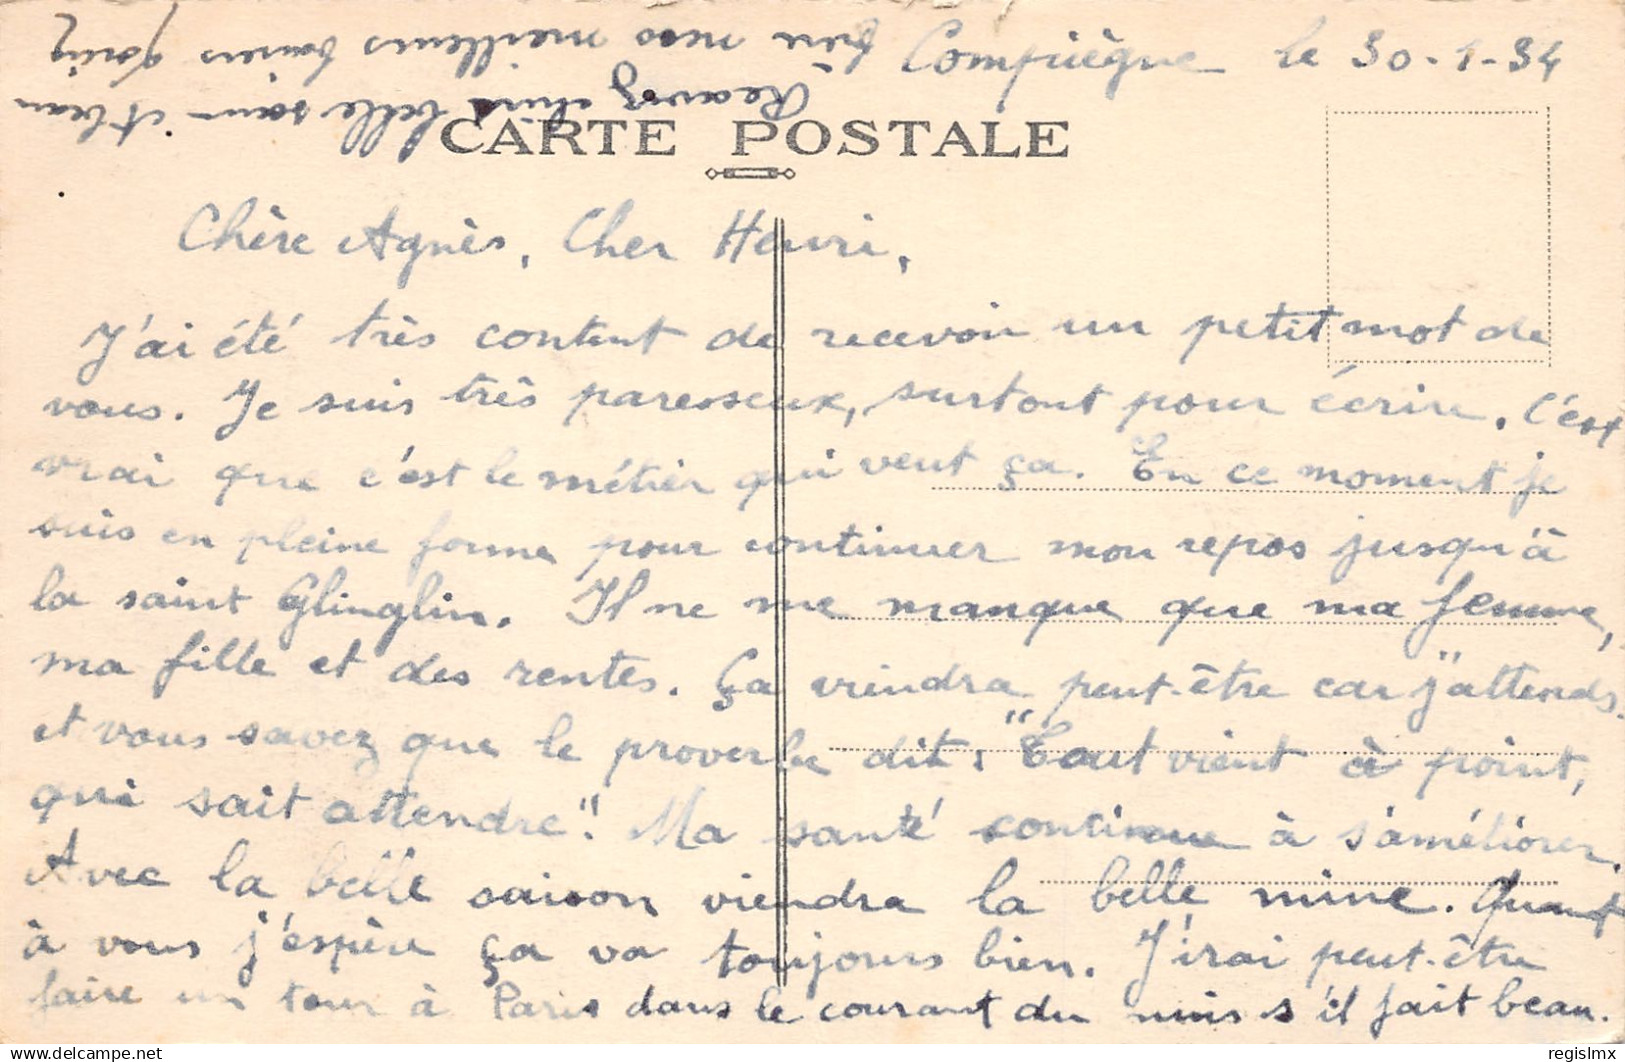 Compiègne le 30-1-34
CARTE POSTALE
Chère Agnès, Cher Henri,
J'ai été très content de recevoir un petit mot de
vous. Je suis très paresseux, surtout pour écrire. C'est
vrai que c'est le métier qui veut ça. En ce moment je
suis en pleine forme pour continuer mon repos jusqu'à
la saint Glinglin. Il ne me manque que ma femme,
ma fille et des rentes. Ça viendra peut-être car j'attends
et vous savez que le proverbe dit: "Tout vient à point,
qui sait attendre"! Ma santé continue à s'améliorer.
Avec la belle saison viendra la belle mine. Quant
à vous j'espère ça va toujours bien. J'irai peut-être
faire un tour à Paris dans le courant du mois s'il fait beau.
Recevez chère belle sœur et beau
frère mes meilleurs baisers
regislmx